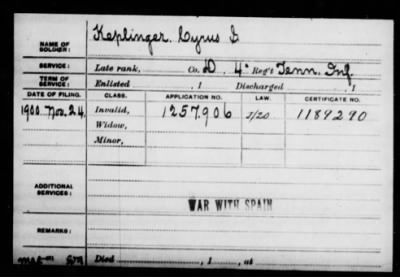 NAME OF SOLDIER: Keplinger, Cyrus
SERVICE: Late rank, Co. D, 4" Reg't Tenn. Inf.
TERM OF SERVICE: Enlisted , 1 Discharged , 1
DATE OF FILING. CLASS. APPLICATION NO. LAW. CERTIFICATE NO.
1900 Nov. 24, Invalid, 1257906 1189290
Widow,
Minor,
ADDITIONAL SERVICES:
WAR WITH SPAIN
REMARKS:
Died , 1 , at